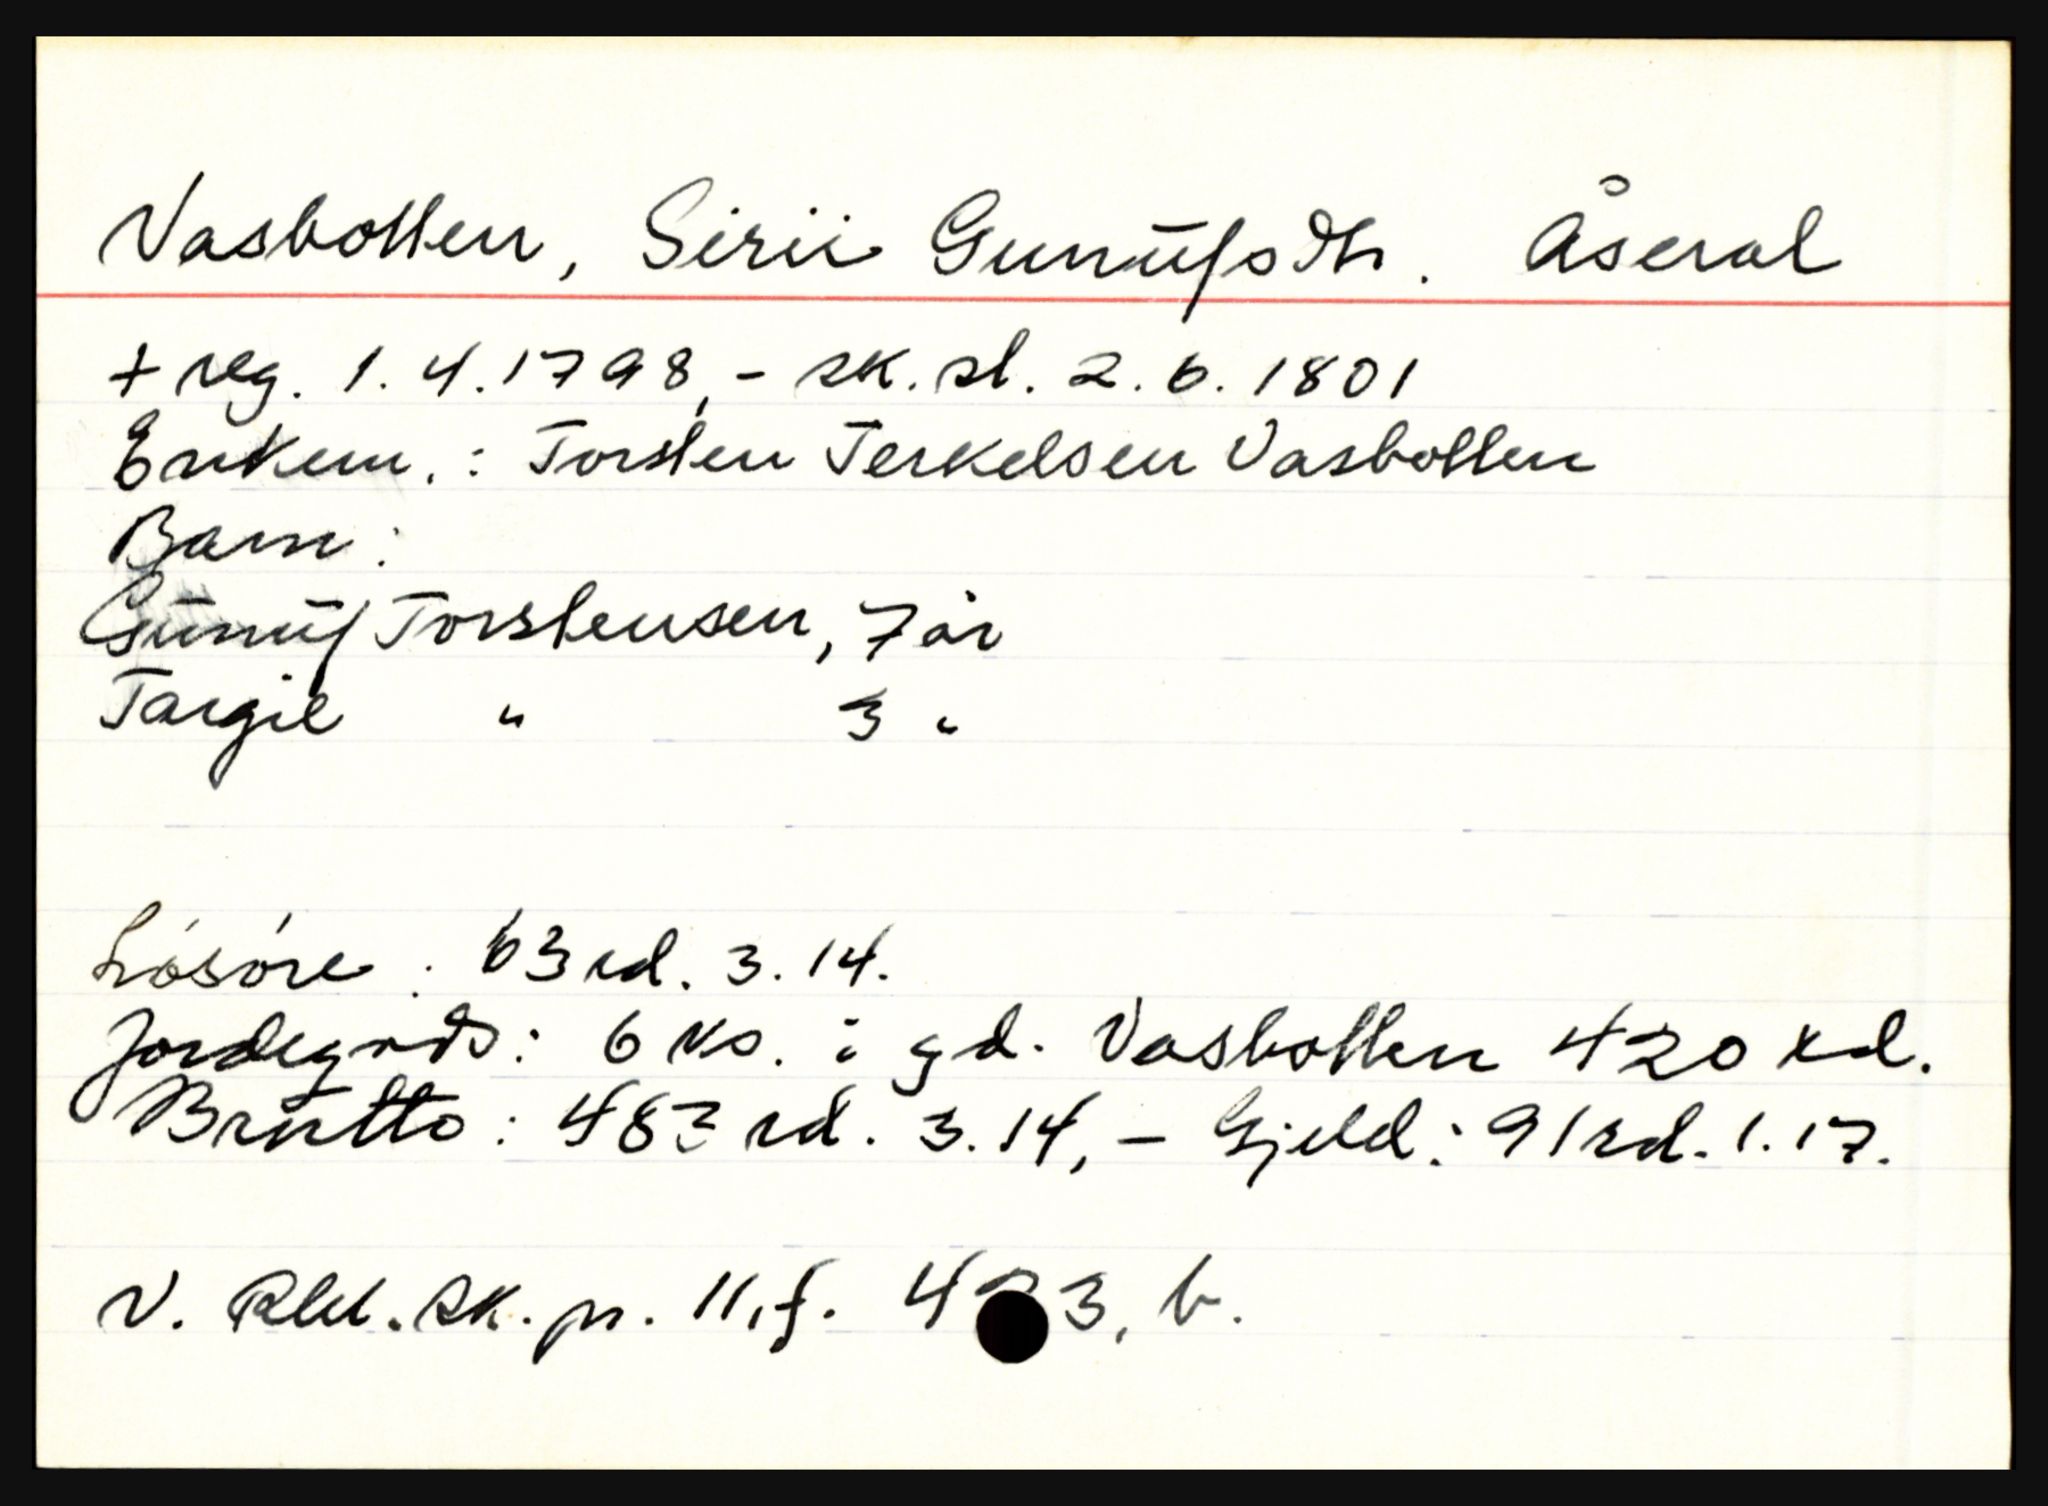 Vasbotten, Sirii Gunufsdtr. Åseral
+ reg. 1.4.1798, - sk. sl. 2.6.1801
Enkem.: Torsten Terkelsen Vasbotten
Barn:
Gunuf Torstensen, 7 år
Targie " 3 "
Løsøre: 63 rd. 3.14.
Jordegods: 6 ks. i gd. Vasbotten 420 rd.
Brutto: 483 rd. 3.14, - Gjeld: 91 rd. 1.17.
V. Rbl. sk. pr. 11, f. 3, b.